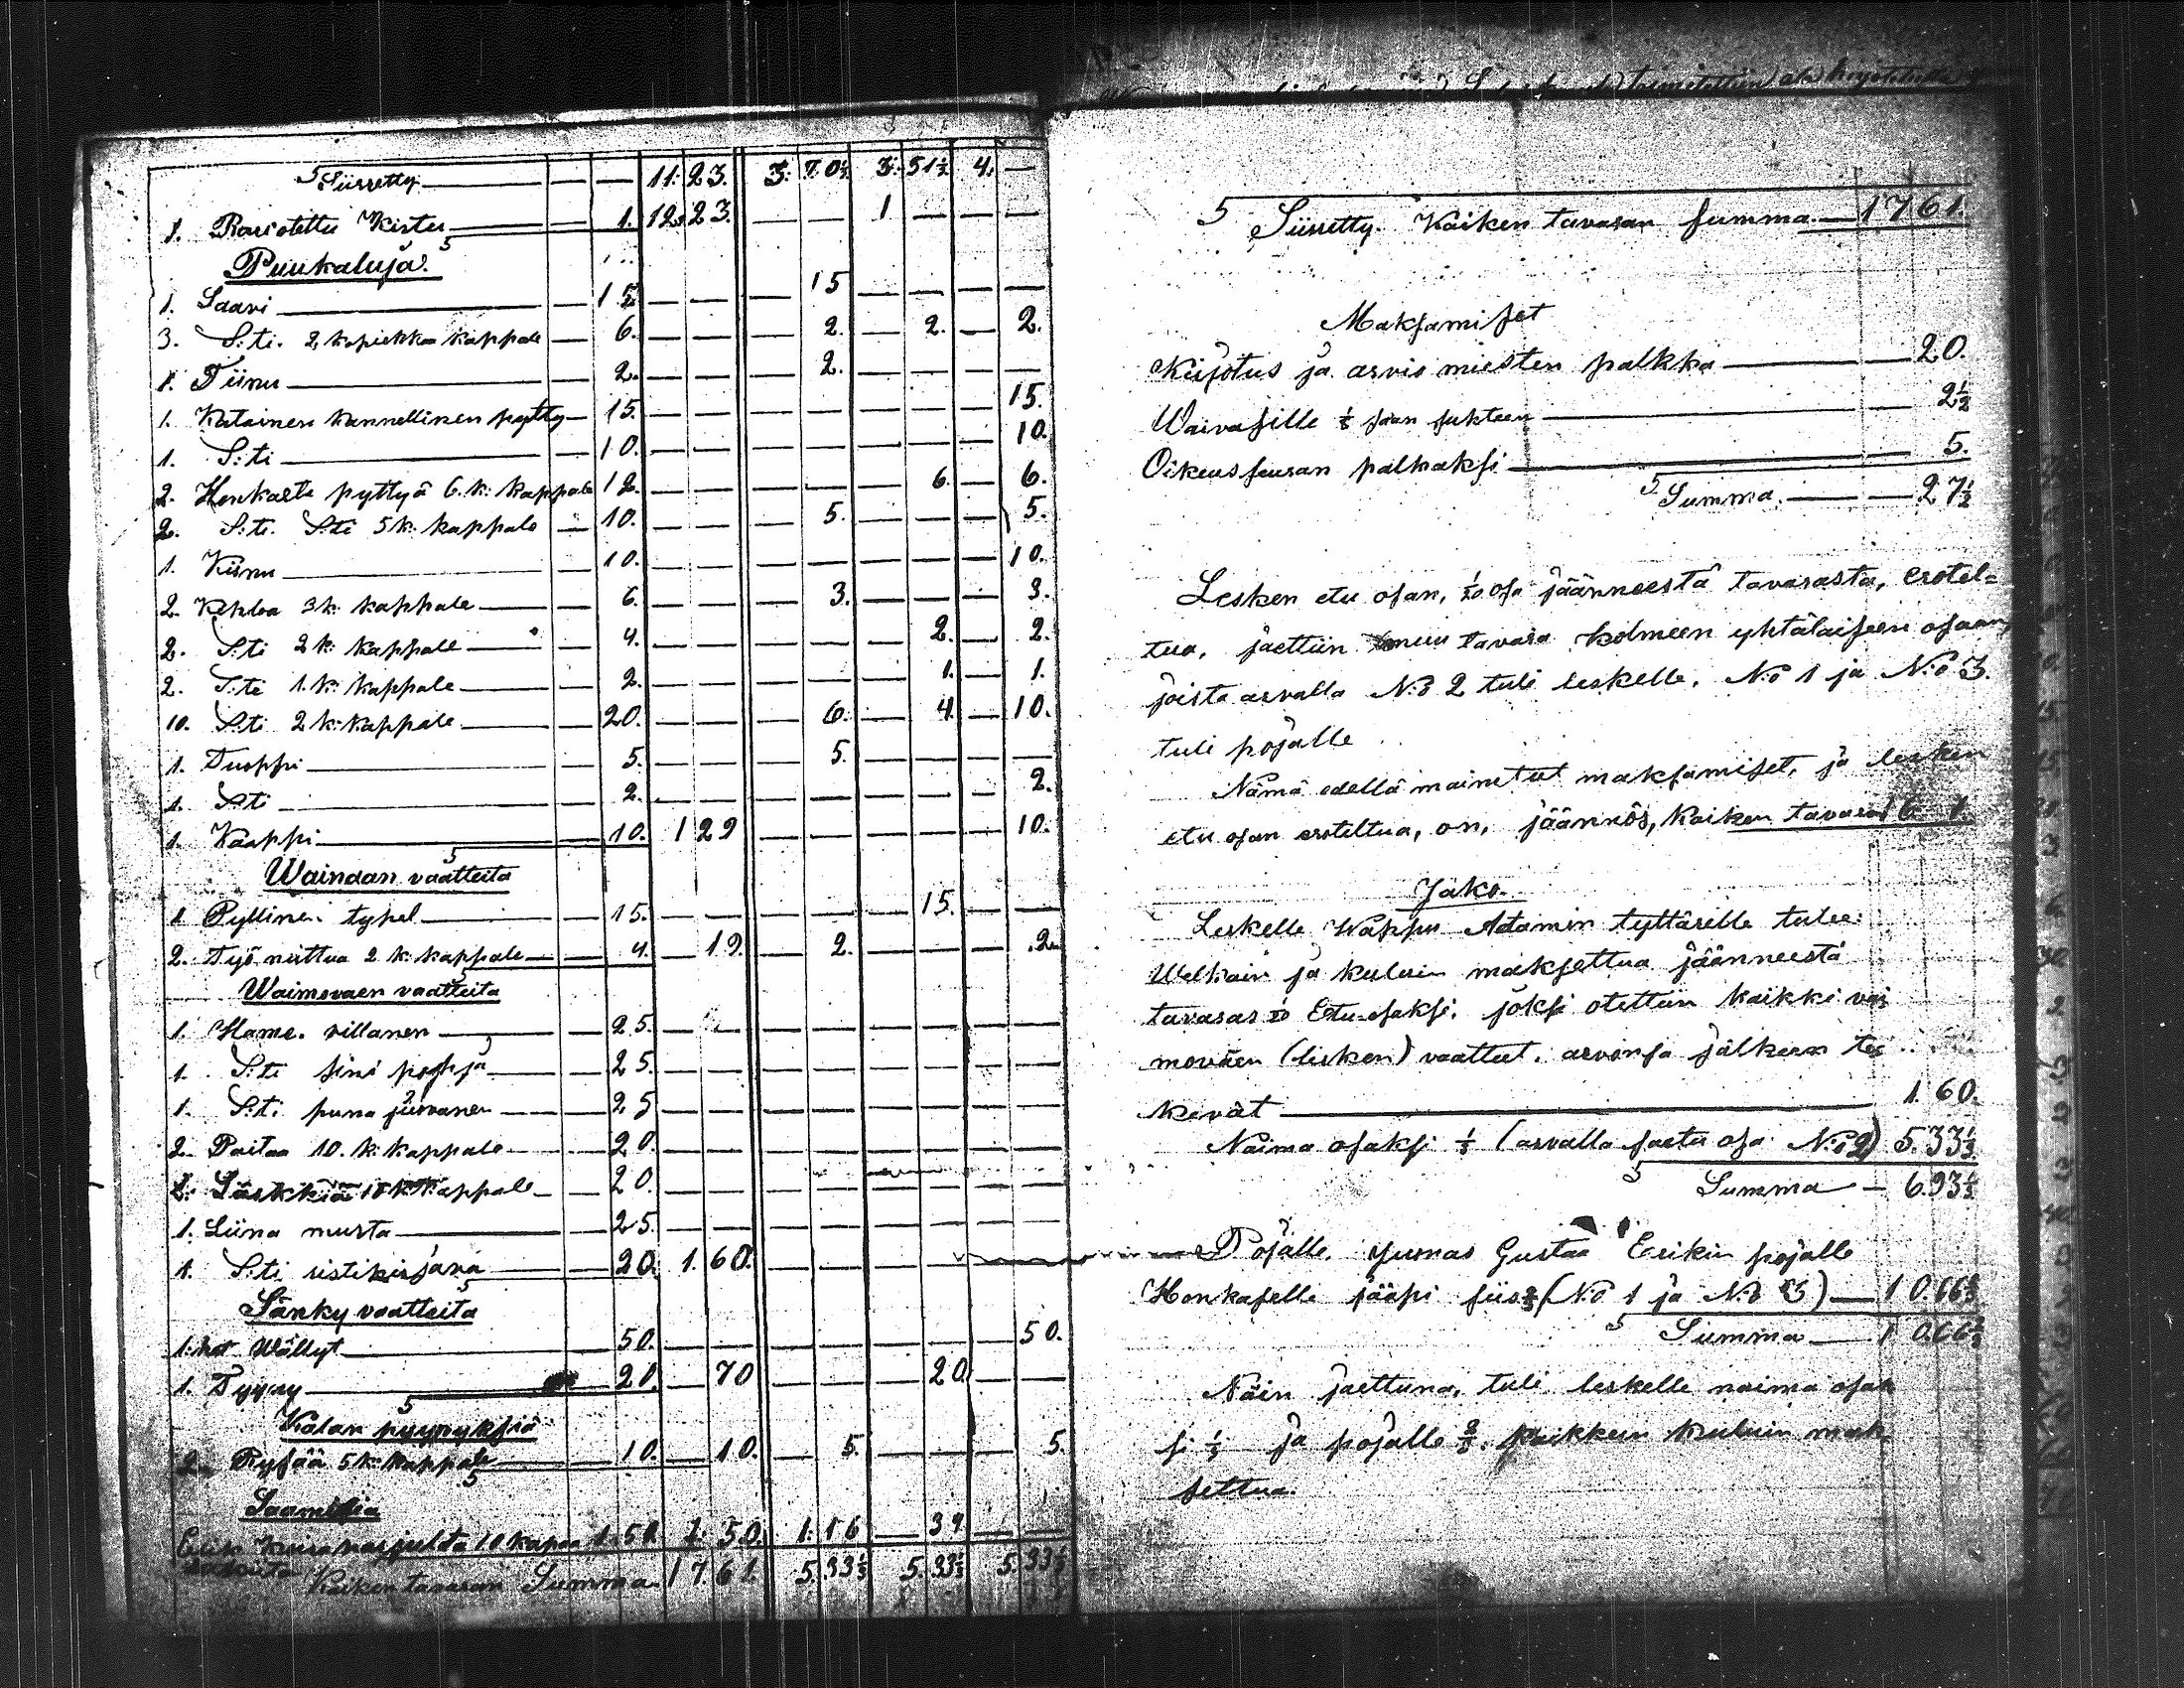 Siirretty — — 11. 23. 3. 70½ 3. 51½ 4. —
1. Raudotettu Kirstu — 1. 12. 23. — — 1 — — —
Puukaluja.
1. Saavi — 15. — — — 15 — — — —
3. S:ti. 2 kopiekkaa kappale — 6. — — — 2. — 2. — 2.
1. Tiinu — 2. — — — 2. — — — —
1. Katainen kannellinen pytty — 15. — — — — — — — 15.
1. S:ti — 10. — — — — — — — 10.
2. Honkasta pyttyä 6. k: kappale 12. — — — — — 6. — 6.
2. S:ti. S:ti 5 k: kappale — 10. — — — 5. — — — 5.
1. Kiinu — 10. — — — — — — — 10.
2. Kehloa 3 k: kappale — 6. — — — 3. — — — 3.
2. S:ti 2 k: kappale — 4. — — — — — 2. — 2.
2. S:ti 1. k: kappale — 2. — — — — — 1. — 1.
10. S:ti 2 k: kappale — 20. — — — 6. — 4. — 10.
1. Tuoppi — 5. — — — 5. — — — —
1. S:ti — 2. — — — — — — — 2.
1. Kaappi — 10. 1 29 — — — — — 10.
Wainaan vaatteita
1. Pyllinen — 15. — — — — — 15. — —
2. Työ 2 k. kappale — 4. — 19. — 2. — — — 2.
Waimovaen vaatteita
1. Hame. villanen — 25. — — — — — — —
1. S:ti sini pohja — 25. — — — — — — — —
1. S:ti puna juovanen — 25 — — — — — — — —
2. Paitaa 10. k: kappale — 20. — — — — — — — —
2. kappale — 20. — — — — — — —
1. Liina musta — 25. — — — — — — — —
1. S:ti ristikirjava — 20. 1. 60. — — — —
Sänky vaatteita
1. Wällyt — 50. — — — — — — — 50.
1. Tyyny — 20. — 70 — — — 20. — —
Kalan pyynyksiä
2. Rysää 5 k: kappale — 10. — 10. — 5. — — — 5.
Saamisia
10 kapaa 1. 50. 1. 50. 1. 16 — 34 — —
Kaiken tavaran Summa. 17. 61. 5. 33⅓ 5. 33⅓ 5. 33⅓
toimitettiin ala kirjotetulla
Siirretty. Kaiken tavaran summa. — 17 61.
Maksamiset
Kirjotus ja arvio miesten palkka — 20.
Waivasille ⅛ saan suhteen — 2½
Oikeus seuran palkaksi — 5.
Summa. — 27½
Lesken etu osan, 1/20 osa jäänneestä tavarasta, erotel=
tua, jaettiin muu tavara kolmeen yhtälaiseen osaan,
joista arvalla N:o 2 tuli leskelle. N:o 1 ja N:o 3.
tuli pojalle
Nämä edellä mainetut maksamiset, ja lesken
etu osan eroteltua, on, jäännös, kaiken tavaran 16. 1.
Jako.
Leskelle Wappu Adamin tyttärelle tulee
Welkain ja kuluin maksettua jäänneestä
tavaras 1/20 Etu-osaksi. joksi otettiin kaikki vai
moväen (lesken) vaatteet. arvonsa jälkeen te
kevät — 1. 60.
Naima osaksi ⅓ (arvalla saatu osa N:o 2) 5. 33⅓
Summa — 6. 93⅓
Pojalle. Jumas Gustaa Erikin pojalle
Honkaselle jääpi siis ⅔ (N:o 1 ja N:o 3) — 10. 66⅔
Summa — 10. 66⅔
Näin jaettuna, tuli leskelle naima osak
si ⅓ ja pojalle ⅔. kaikkein kuluin mak
settua.